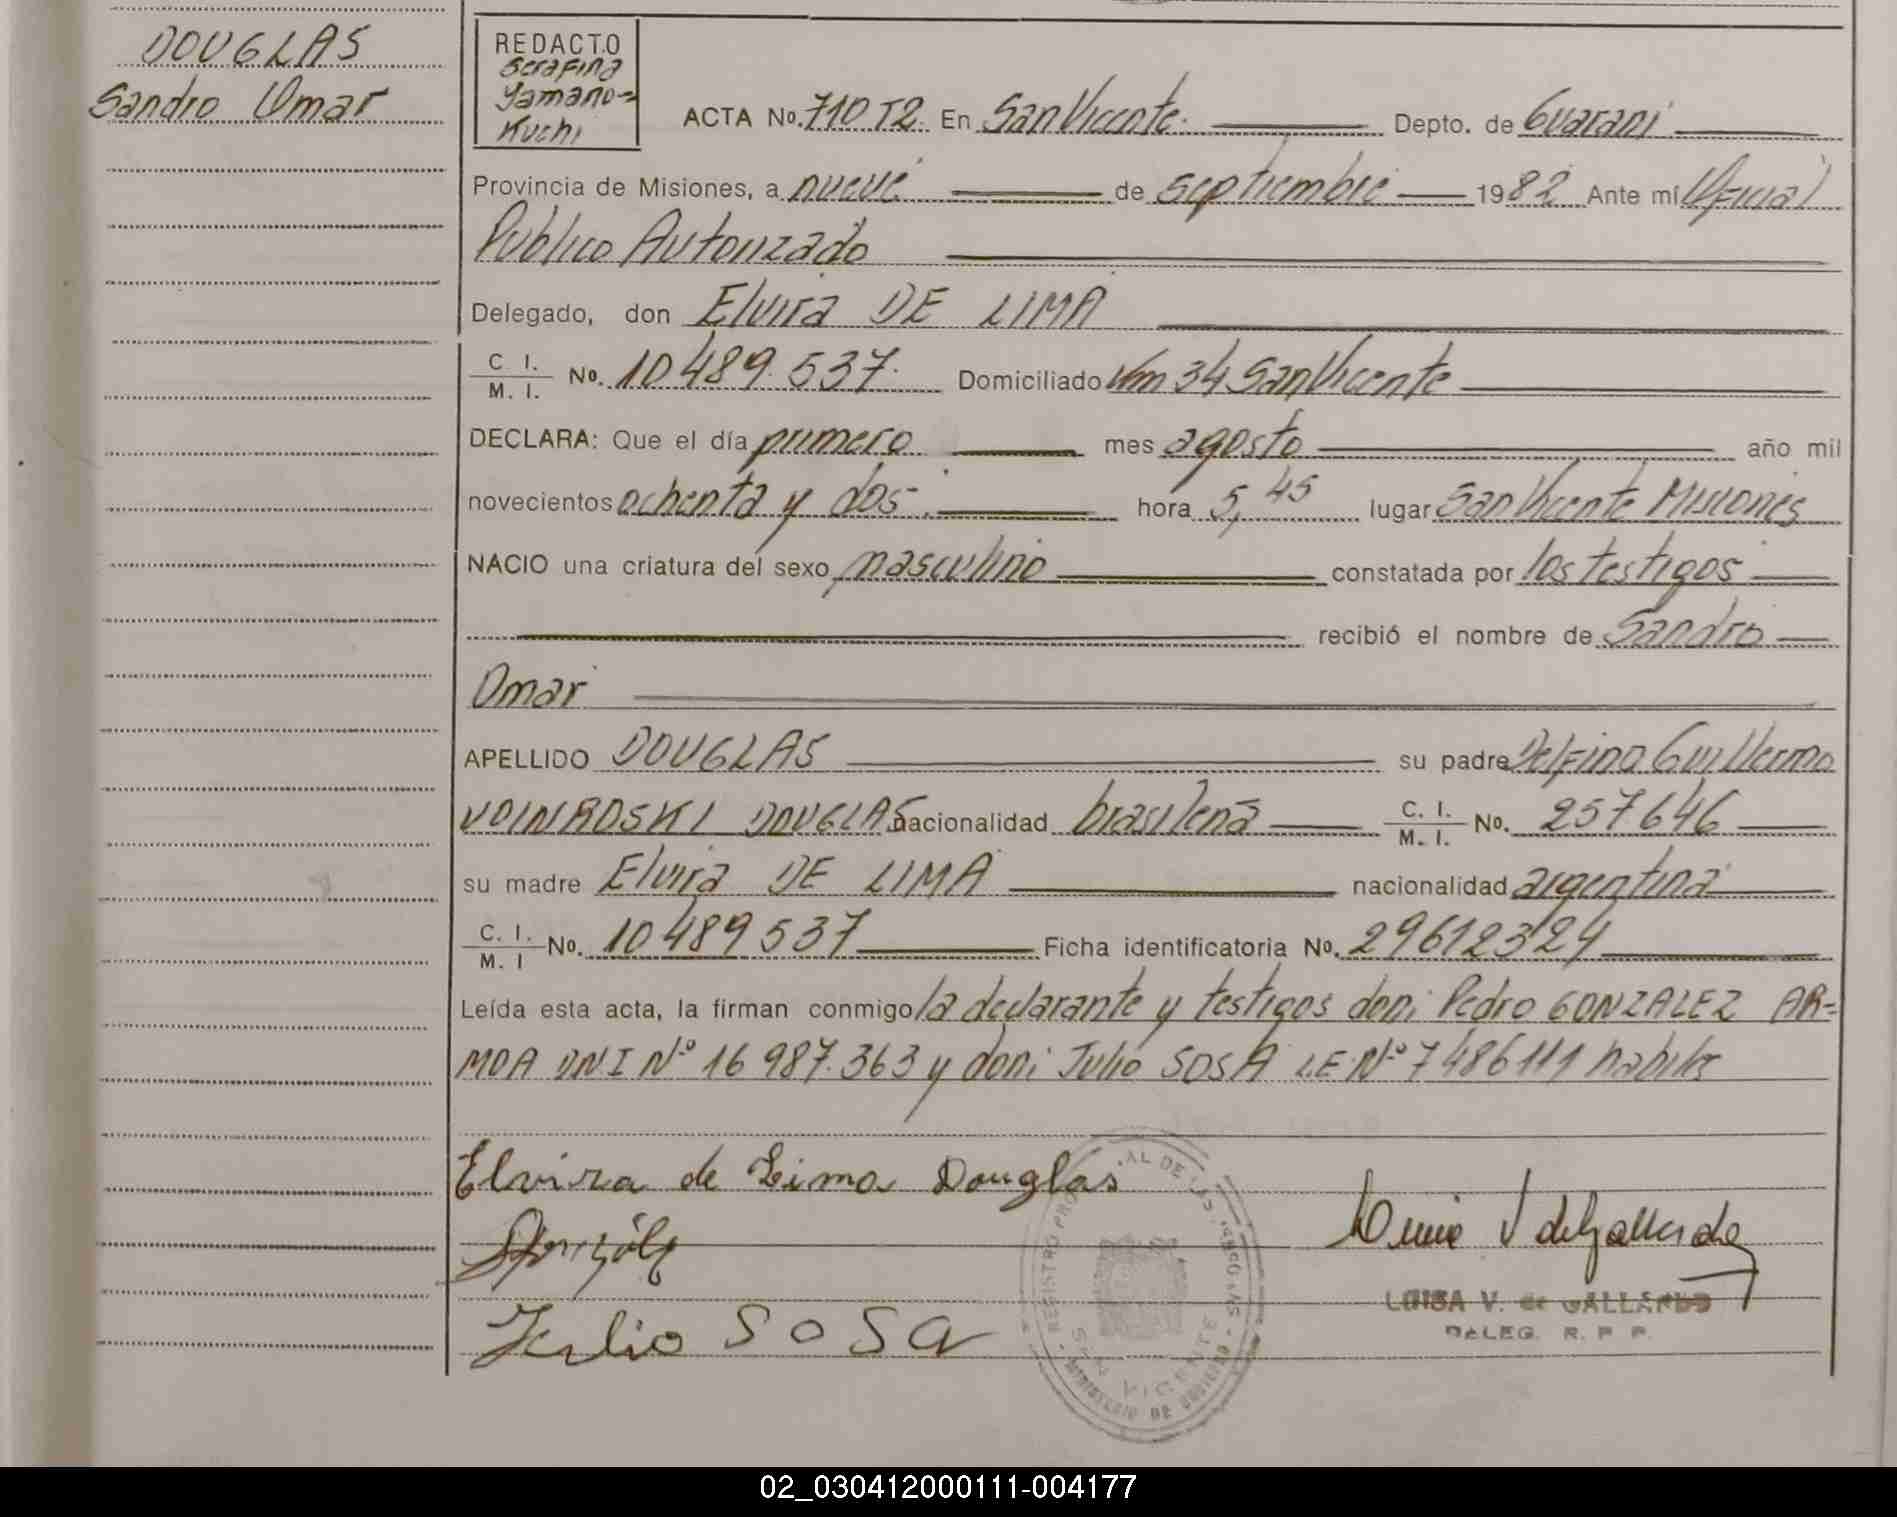 DOUGLAS
Sandro Omar
REDACTO
Serafina
Yamano-
Kuchi
ACTA No. 710 T2. En San Vicente. Depto. de Guarani
Provincia de Misiones, a nueve de septiembre 1982 Ante mí Oficial
Publico Autorizado
Delegado, don Elvira DE LIMA
C. I. / M. I. No. 10489.537. Domiciliado Km 34 San Vicente
DECLARA: Que el día primero mes agosto año mil
novecientos ochenta y dos. hora 5,45 lugar San Vicente Misiones
NACIO una criatura del sexo masculino constatada por los testigos
recibió el nombre de Sandro
Omar
APELLIDO DOUGLAS su padre Delfino Guillermo
VOINROSKI DOUGLAS nacionalidad brasileña C. I. / M. I. No. 257646
su madre Elvira DE LIMA nacionalidad argentina
C. I. / M. I No. 10489537 Ficha identificatoria No. 29612324
Leída esta acta, la firman conmigo la declarante y testigos don: Pedro GONZALEZ AR-
MOA DNI Nº 16 987.363 y don: Julio SOSA L.E. Nº 7486111 habiles
Elvira de Lima Douglas
Julio SOSA
REGISTRO AL DE LAS PERSONAS
SAN VICENTE
MINISTERIO DE GOBIERNO
LUISA V. de GALLARDO
DELEG. R. P. P.
02_030412000111-004177